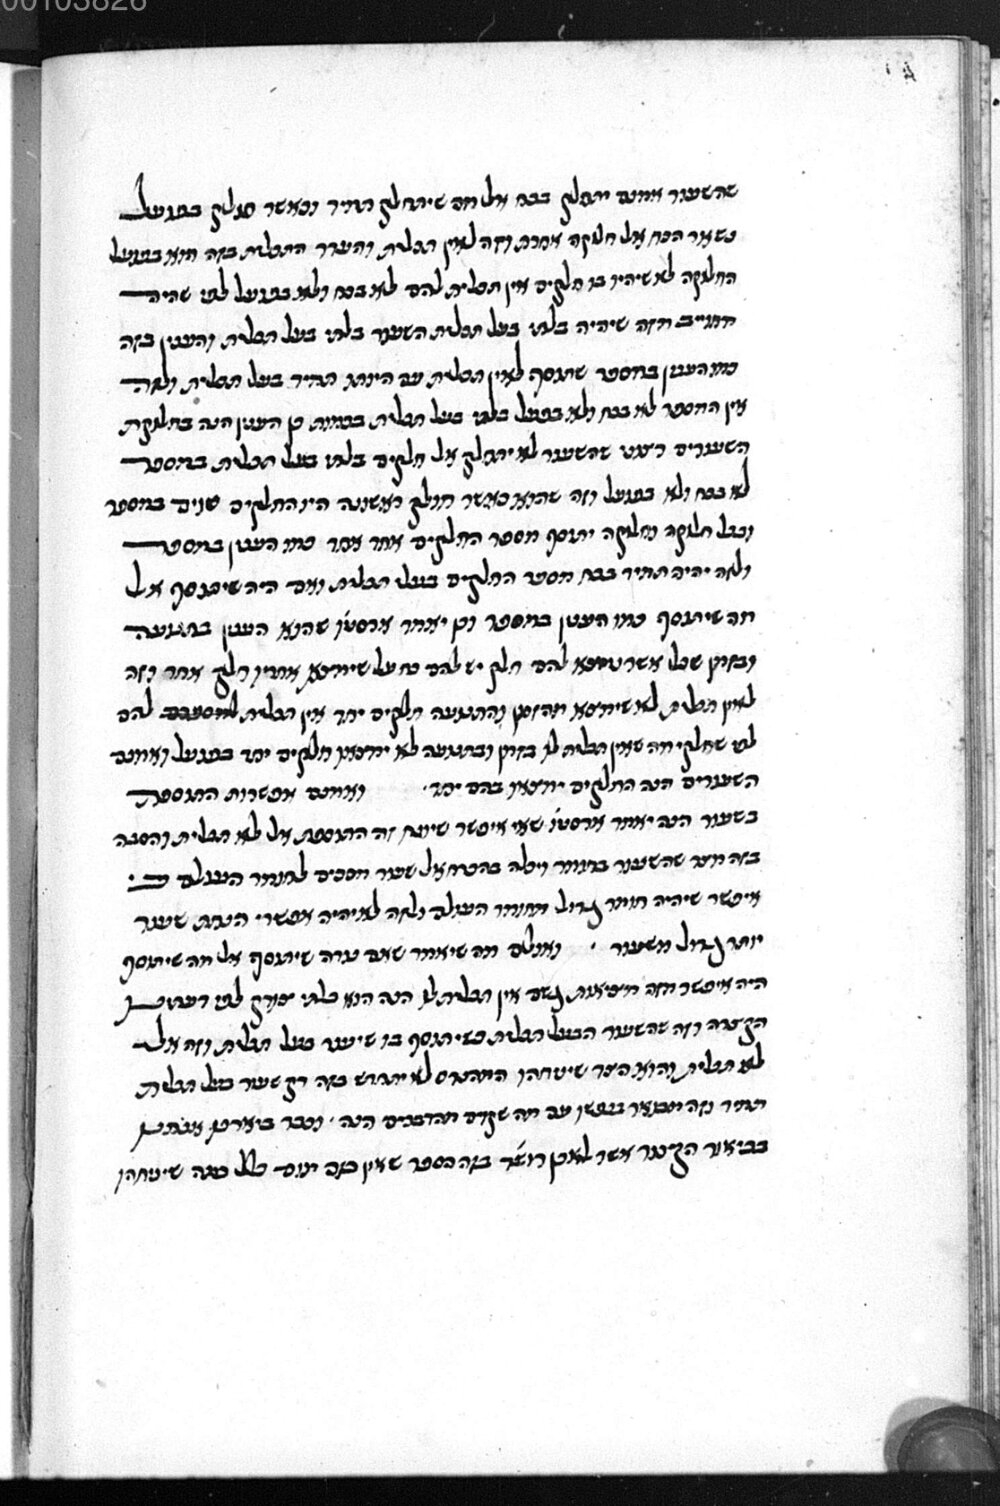 שהשעור אמנם יחלק בכח אל מה שיתחלק תמיד וכאשר חולק בפועל
נשאר הכח אל חלוקה אחרת וזה לאין תכלית והעדר התכלית בזה הוא בפועל
החלוקה לא שיהיו בו חלקים אין תכלית להם לא בכח ולא בפועל לפי שהיה
מחוייב מזה שיהיה בלתי בעל תכלית השעור בלתי בעל תכלית והענין בזה
כמו הענין במספר שתוסף לאין תכלית עם היותו תמיד בעל תכלית ולזה
אין המספר לא בכח ולא בפועל בלתי בעל תכלית בכמות כן הענין הנה בחלוקת
השעורים רצוני שהשעור לא יתחלק אל חלקים בלתי בעל תכלית במספר
לא בכח ולא בפועל וזה שהוא כאשר חולק ראשונה היו החלקים שנים במספר
ובכל חלוקה וחלוקה יתוסף מספר החלקים אחד אחד כמו הענין במספר
ולזה יהיה תמיד בכח מספר החלקים בעלי תכלית ואם היה שיתוסף אל
מה שיתוסף כמו הענין במספר וכן יאמר ארסטו שהוא הענין בתנועה
ובזמן שכל אשר נמצא להם חלק יש להם כח על שימצא אחריו חלק אחר וזה
לאין תכלית לא שימצא מהזמן והתנועה חלקים יחד אין תכלית למספרם להם
לפי שחלקי מה שאין תכלית לו בזמן ובתנועה לא ימצאו חלקים יחד בפועל ואמנם
השעורים הנה החלקים ימצאו בהם יחד. ואמנם אפשרות התוספת
בשעור הנה יאמר ארסטו שאי איפשר שימצא זה התוספת אל לא תכלית והסבה
בזה מצד שהשעור בחומר ויכלה בהכרח אל שעור מסכים לחומר העולם כי
איפשר שיהיה חומר גדול מחומר העולם ולזה לא יהיה אפשרי היות שעור
יותר גדול משעור . ואולם מה שיאמר שאם נודה שיתוסף אל מה שיתוסף
היה איפשר מזה מציאות גשם אין תכלית לו הנה הוא בלתי צודק לפי דעתי
הקצרה וזה שהשעור הבעל תכלית כשיתוסף בו שיעור בעל תכלית וזה אל
לא תכלית והוא הצד שיטחהו המהנדס לא יתחדש בזה רק שעור בעל תכלית
תמיד וזה מבואר בנפשו עם מה שקדם מהדברים הנה . וכבר ביארנו אנחנו
בביאור הקצור אשר לאבן רושד בזה הספר שאין בכח יגיע כלל בזה שיניחהו